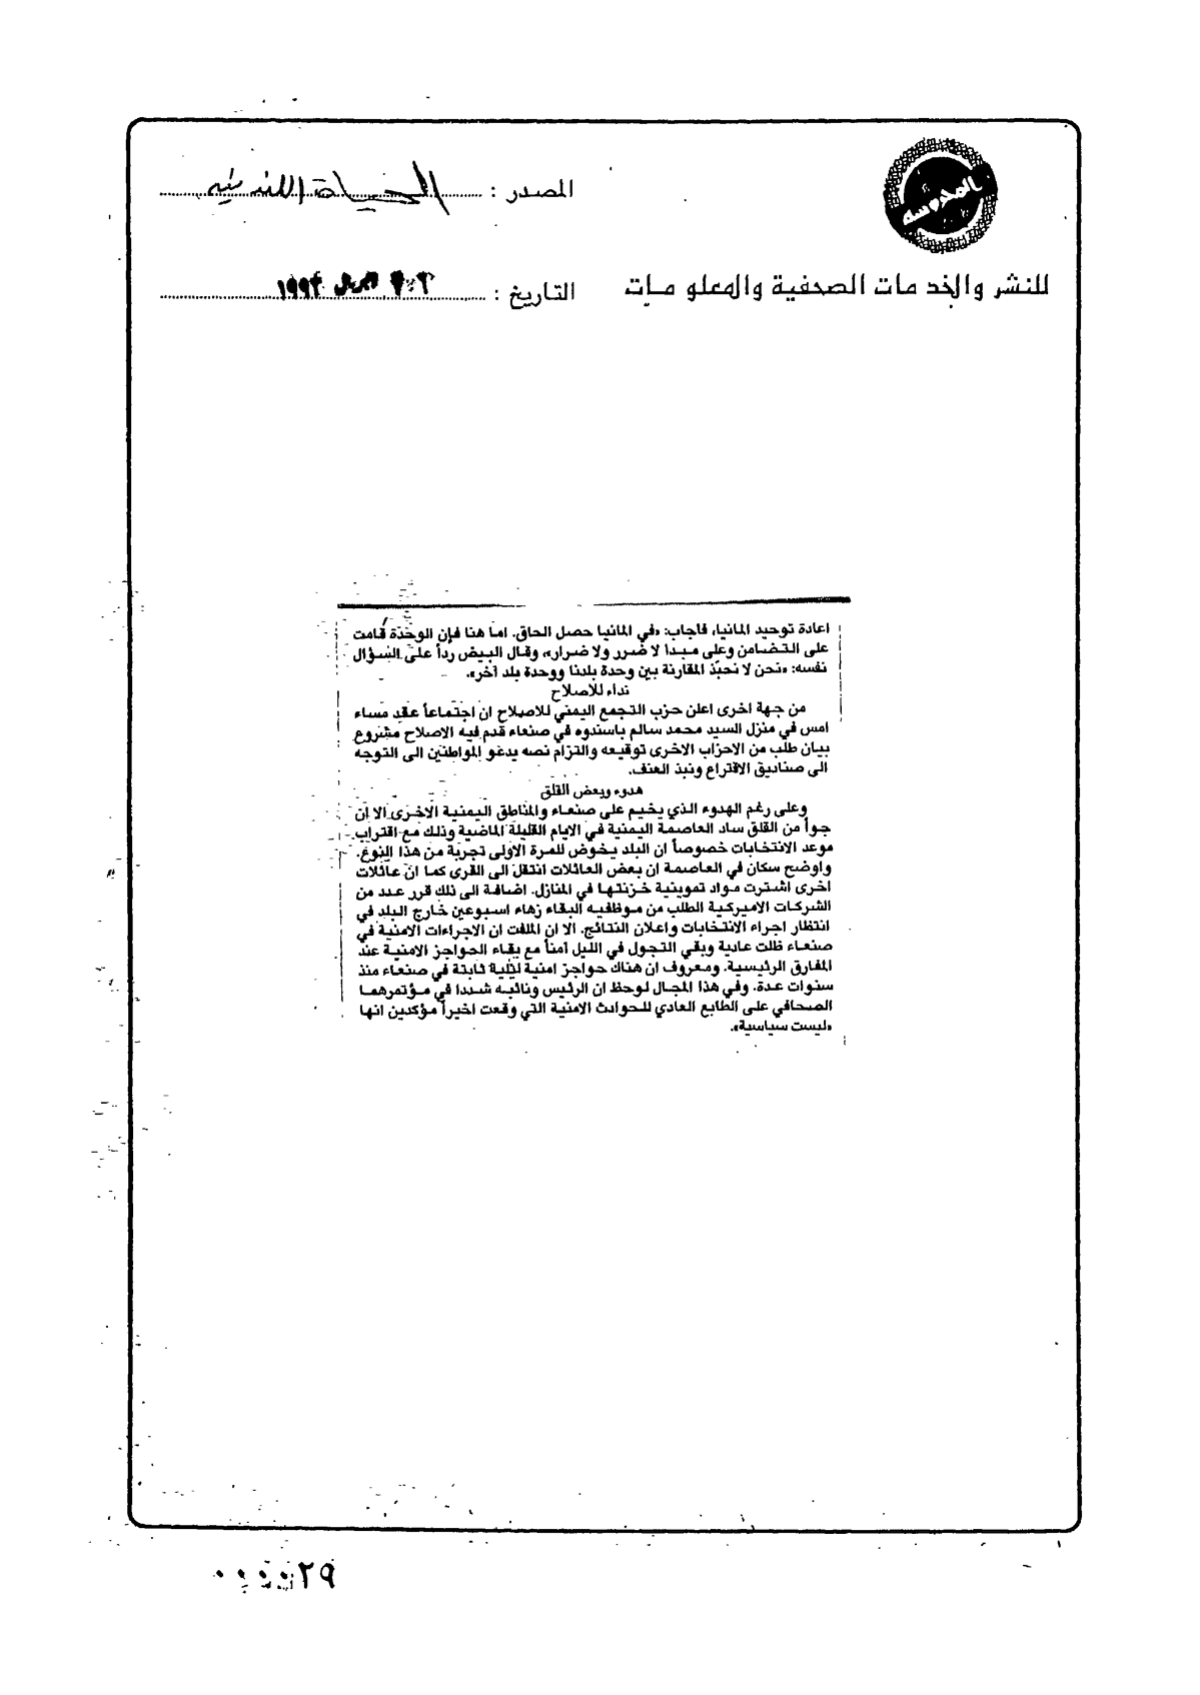 المصدر : الحياة اللندنية
للنشر والخدمات الصحفية والمعلومات
التاريخ : ابريل ١٩٩٣
اعادة توحيد المانيا، فاجاب: «في المانيا حصل الحاق. اما هنا فإن الوحدة قامت
على التضامن وعلى مبدا لا ضرر ولا ضرار»، وقال البيض رداً على السؤال
نفسه: «نحن لا نحبّذ المقارنة بين وحدة بلدنا ووحدة بلد آخر».
نداء للاصلاح
من جهة اخرى اعلن حزب التجمع اليمني للاصلاح ان اجتماعاً عقد مساء
امس في منزل السيد محمد سالم باسندوه في صنعاء قدم فيه الاصلاح مشروع
بيان طلب من الاحزاب الاخرى توقيعه والتزام نصه يدعو المواطنين الى التوجه
الى صناديق الاقتراع ونبذ العنف.
هدوء وبعض القلق
وعلى رغم الهدوء الذي يخيم على صنعاء والمناطق اليمنية الاخرى الا ان
جواً من القلق ساد العاصمة اليمنية في الايام القليلة الماضية وذلك مع اقتراب
موعد الانتخابات خصوصاً ان البلد يخوض للمرة الاولى تجربة من هذا النوع.
واوضح سكان في العاصمة ان بعض العائلات انتقل الى القرى كما ان عائلات
اخرى اشترت مواد تموينية خزنتها في المنازل. اضافة الى ذلك قرر عدد من
الشركات الاميركية الطلب من موظفيه البقاء زهاء اسبوعين خارج البلد في
انتظار اجراء الانتخابات واعلان النتائج. الا ان الملفت ان الاجراءات الامنية في
صنعاء ظلت عادية وبقي التجول في الليل آمناً مع بقاء الحواجز الامنية عند
المفارق الرئيسية. ومعروف ان هناك حواجز امنية ليلية ثابتة في صنعاء منذ
سنوات عدة. وفي هذا المجال لوحظ ان الرئيس ونائبه شددا في مؤتمرهما
الصحافي على الطابع العادي للحوادث الامنية التي وقعت اخيراً مؤكدين انها
«ليست سياسية».